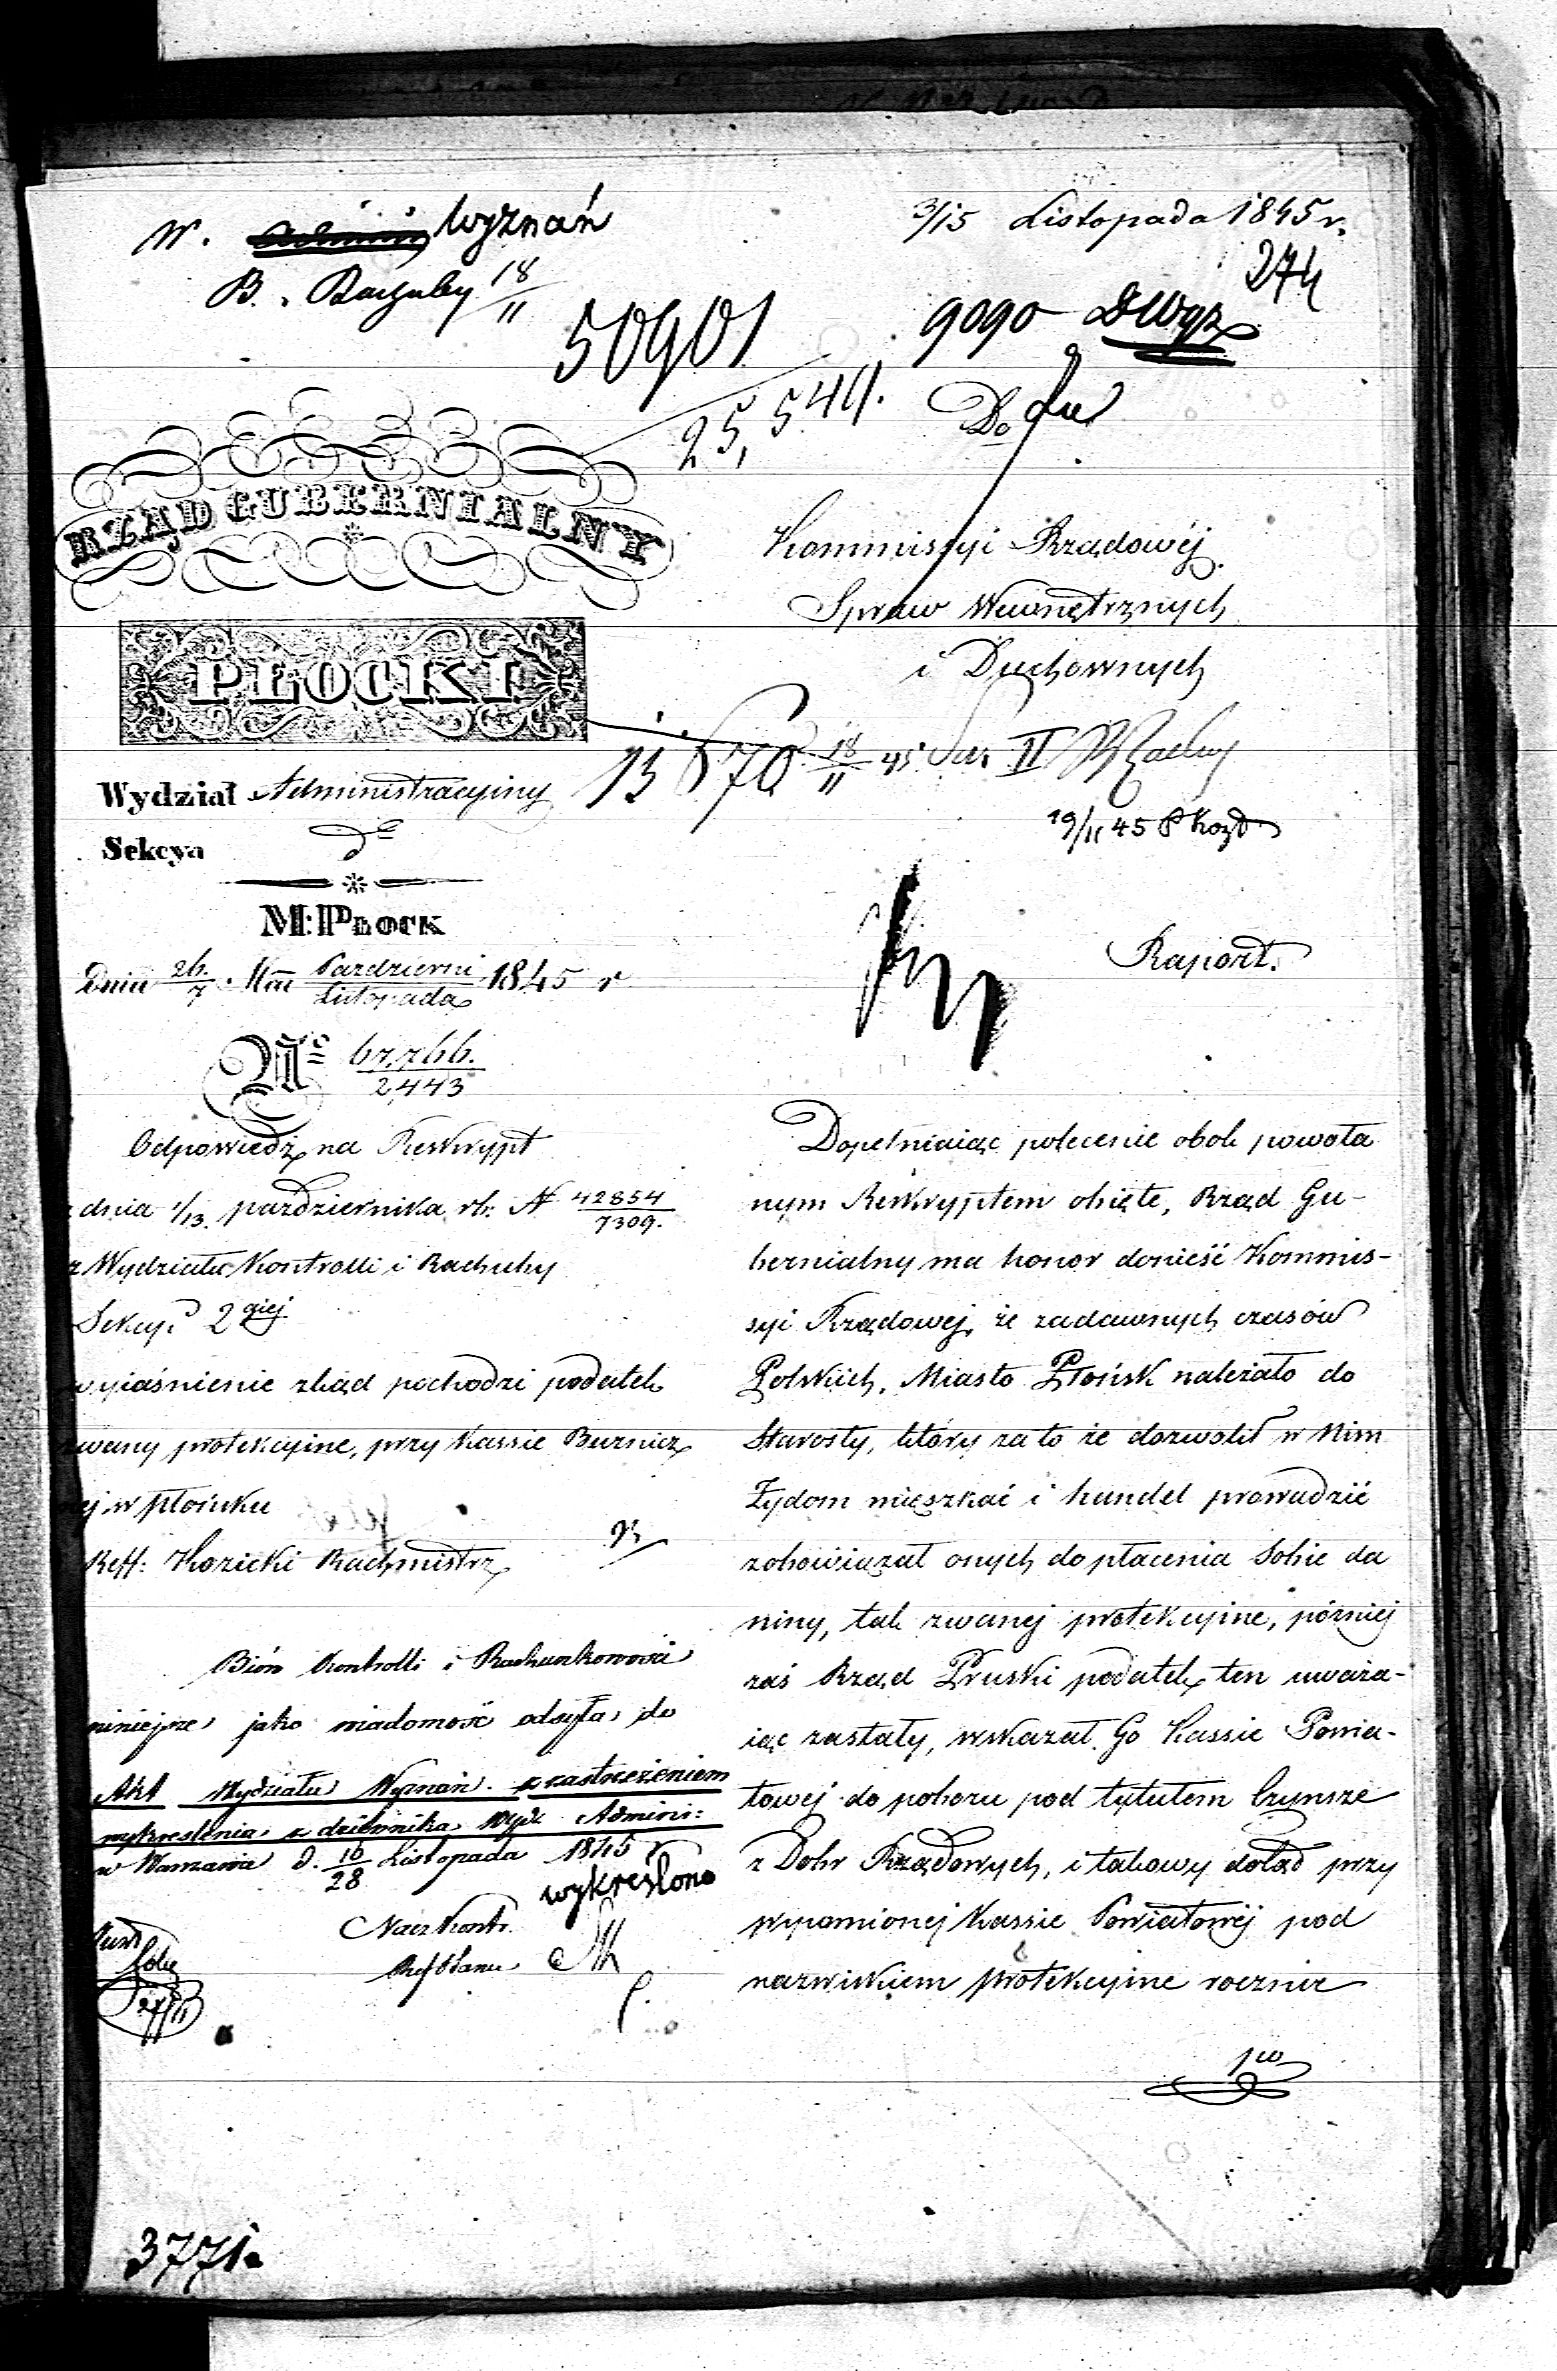 W. Wyznań
B. Rachuby 18/11
3/15 Listopada 1845 r.
274
50901
25,544.
9090 DWyz
Do
RZĄD GUBERNIALNY
PŁOCKI
Kommissyi Rządowéj
Spraw Wewnętrznych
i Duchownych
Wydział Administracyiny
18/11 45 II
Sekcya
19/11 45
M: PŁOCK
Dnia 26/7 Mca Pazdzierni/Listopada 1845 r
No 67,766./2443
Raport.
Odpowiedź na Reskrypt
z dnia 1/13. pazdziernika rb. N 42854/7309.
z Wydziału Kontrolli i Rachuby
Sekcyi 2giej
wyiaśnienie zkąd pochodzi podatek
zwany protekcyine, przy Kassie Burmicz
ej w Płońsku
Reff: Kozicki Rachmistrz
Dopełniaiąc polecenie obok powoła
nym Reskryptem obięte, Rząd Gu-
bernialny ma honor donieść Kommis-
syi Rządowej, że zadawnych czasów
Polskich, Miasto Płońsk należało do
Starosty, który za to że dozwolił w Nim
Żydom mięszkać i handel prowadzić
zobowiązał onych do płacenia Sobie da
niny, tak zwanej protekcyine, pózniej
zaś Rząd Pruski podatek ten uważa-
iąc za stały, wskazał Go Kassie Powia-
towej do poboru pod tytułem Czynsze
z Dobr Rządowych, i takowy dotąd przy
wspomionej Kassie Powiatowéj pod
nazwiskiem protekcyine rocznie
Bióro Kontrolli i Rachunkowości
niniejsze jako wiadomość odsyła do
Akt Wydziału Wyznań z zastrzeżeniem
wykreślenia z dziennika Wydz Admini:
w Warszawie d. 16/28 Listopada 1845 r
wykreślono
Nacz Kontr.
3771.